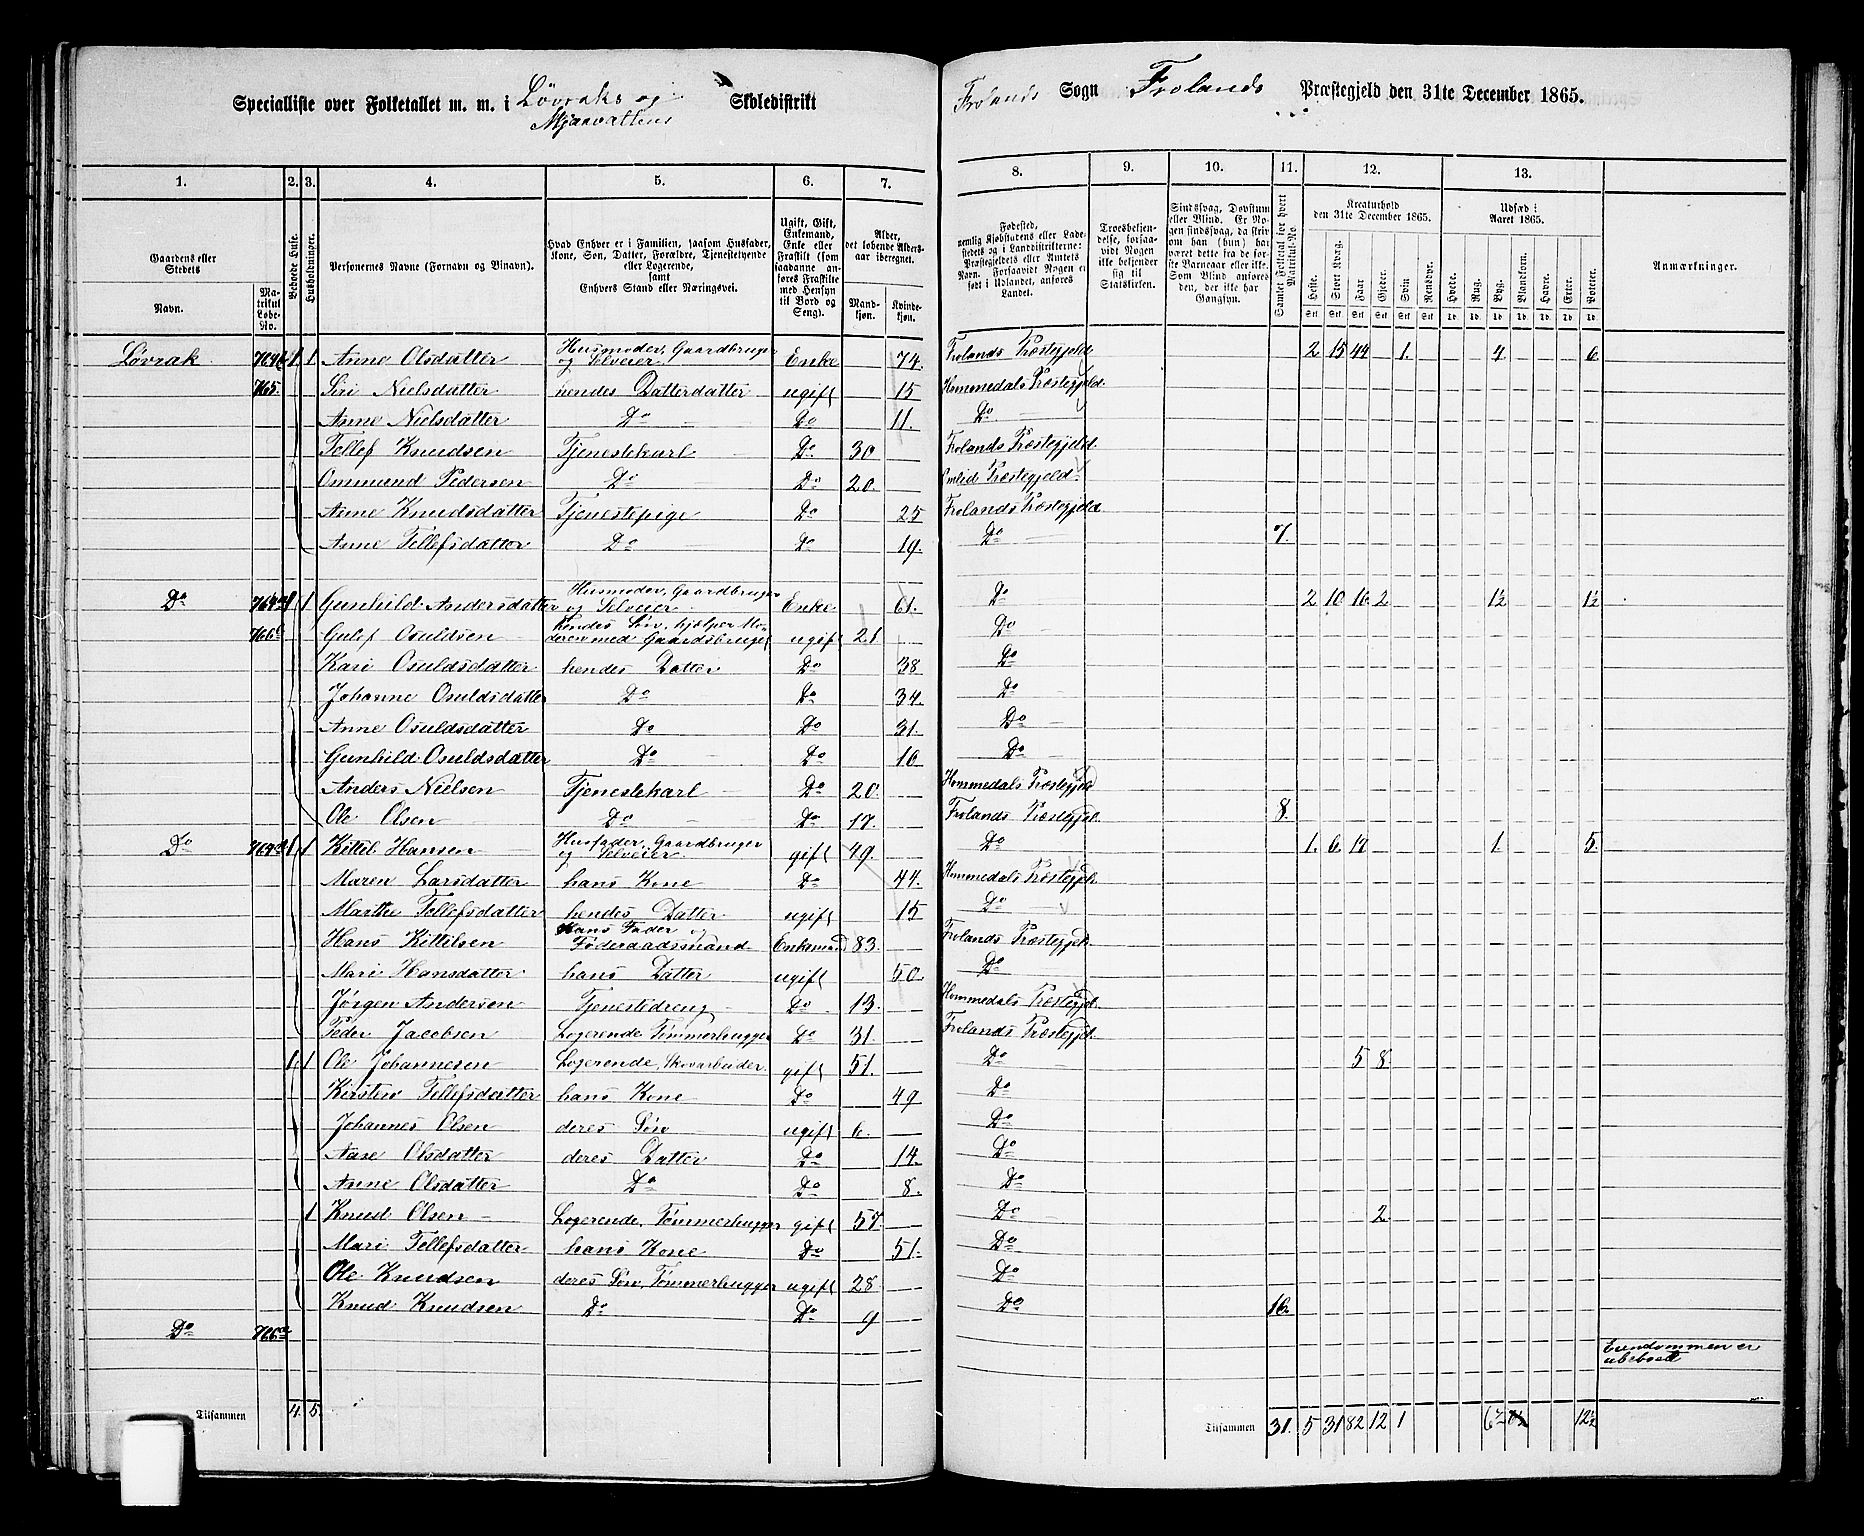 Specialliste over Folketallet m. m. i Lövraks og Skoledistrikt Frolands Sogn Frolands Præstegjeld den 31te December 1865.
Mjaavattens
1. 2. 3. 4. 5. 6. 7. 8. 9. 10. 11. 12. 13.
Gaardens eller Stedets
Navn.
Matrikul Løbe-No.
Bebodede Huse.
Husholdninger.
Personernes Navne (Fornavn og Tilnavn).
Hvad Enhver er i Familien, saasom Husfader, Kone, Søn, Datter, Forældre, Tjenestetyende eller Logerende, samt Enhvers Stand eller Næringsvei.
Ugift, Gift, Enkemand, Enke eller Fraskilt (som saadanne anføres Fraskilte med Hensyn til Bord og Seng).
Alder, det løbende Aldersaar iberegnet.
Mandkjøn. Kvindekjøn.
Fødested, nemlig Kjøbstadens eller Ladestedets og i Landdistrikterne: Præstegjeldets eller Amtets Navn. Forsaavidt Nogen er født i Udlandet, anføres Landet.
Troesbekjendelse, forsaavidt Nogen ikke bekjender sig til Statskirken.
Sindssvag, Døvstum eller Blind. Er Nogen sindssvag, da skrives om han (hun) har været det fra de første Barneaar eller ikke. Som Blind anføres den, der ikke har Gangsyn.
Samlet Folketal for hvert Matrikul-No.
Kreaturhold den 31te December 1865.
Heste. Stort Kvæg. Faar. Gjeder. Svin. Rensdyr.
Udsæd i Aaret 1865.
Hvede. Rug. Byg. Blandkorn. Havre. Erter. Poteter.
Anmærkninger.
Lövrak 764b 1 1 Anne Olsdatter Husmoder, Gaardbruger og Selveier Enke 74. Frolands Præstegjeld 2 15 44 1. 4. 6.
765. Siri Nielsdatter hendes Datterdatter ugift 15 Hommedals Præstegjeld.
Anne Nielsdatter Do Do 11. Do
Tellef Knudsen Tjenestekarl Do 30 Frolands Præstegjeld.
Ommund Pedersen Do Do 20. Præstegjeld.
Anne Knudsdatter Tjenestepige Do 25 Frolands Præstegjeld
Anne Tellefsdatter Do Do 19. Do 7.
Do 1 1 Gunhild Andersdatter Husmoder, Gaardbruger og Selveier Enke 61. Do 2 10 16 2 1½ 1½
Gulef Osuldsen hendes Søn, hjelper Moderen med Gaardsbruget ugift 21 Do
Kari Osuldsdatter hendes Datter Do 38 Do
Johanne Osuldsdatter Do Do 34. Do
Anne Osuldsdatter Do Do 31. Do
Gunhild Osuldsdatter Do Do 16 Do
Anders Nielsen Tjenestekarl Do 20. Hommedals Præstegjeld
Ole Olsen Do Do 17. Frolands Præstegjel. 8.
Do 1 1 Kittil Hansen Husfader, Gaardbruger og Selveier gift 49. Do 1. 6. 17 1. 5.
Maren Larsdatter hans Kone Do 44. Hommedals Præstegjeld.
Marthe Tellefsdatter hendes Datter ugift 15 Do
Hans Kittilsen Hans Fader og Föderaadsmand Enkemand 83. Frolands Præstegjeld.
Mari Hansdatter hans Datter ugift 50. Do
Jörgen Andersen Tjenestedreng Do 13. Hommedals Præstegjeld.
Peder Jacobsen Logerende Tömmerhugger Do 31. Frolands Præstegjeld.
1 1 Ole Johannesen Logerende, Skovarbeider. gift 51. Do 5 8.
Kirsten Tellefsdatter hans Kone Do 49 Do
Johannes Olsen deres Søn ugift 6. Do
Aase Olsdatter deres Datter Do 14. Do
Anne Olsdatter Do Do 8. Do
1 Knud Olsen Logerende, Tömmerhugger gift 57. Do 2.
Mari Tellefsdatter hans Kone Do 51. Do
Ole Knudsen deres Søn, Tömmerhugger ugift 28. Do
Knud Knudsen Do Do 9 Do 16.
Do 766a
Eiendommen er ubeboet
Tilsammen 4. 5. Tilsammen 31. 5 31 82 12 1 6½ 12½